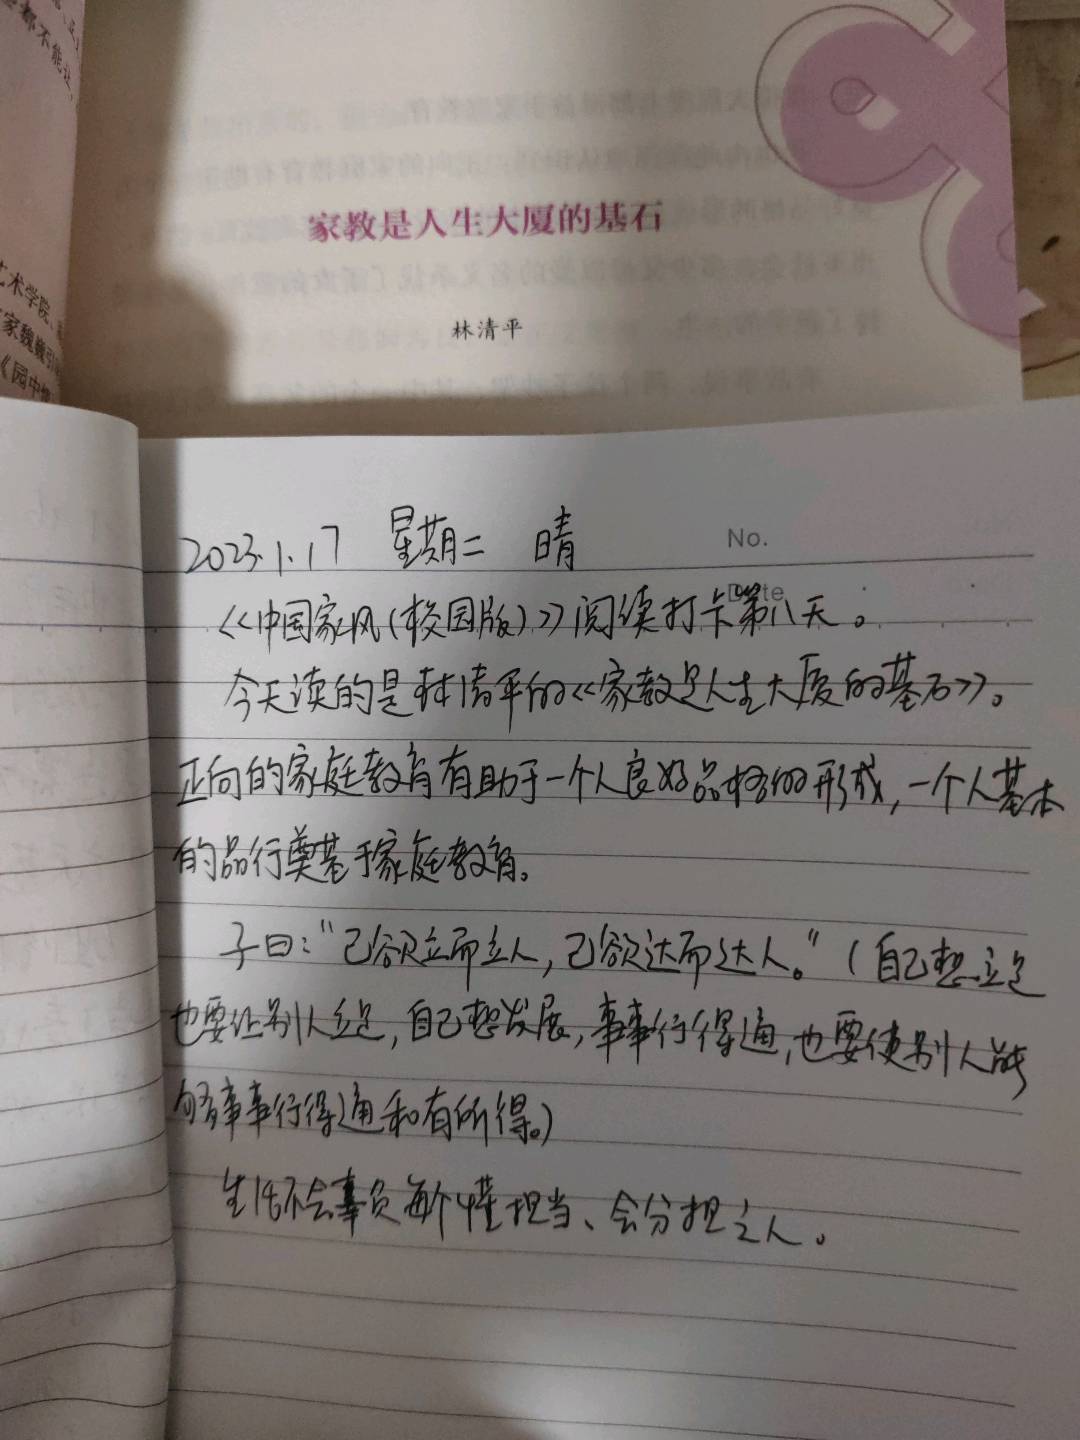 都不能让,
艺术学院、
家魏巍引
《园中
家教是人生大厦的基石
林清平
No.
Date
2023.1.17 星期二 晴
《中国家风(校园版)》阅读打卡第八天。
今天读的是林清平的《家教是人生大厦的基石》。
正向的家庭教育有助于一个人良好品格的形成,一个人基本
的品行奠基于家庭教育。
子曰:“己欲立而立人,己欲达而达人。”(自己想立足
也要让别人立足,自己想发展,事事行得通,也要使别人能
够事事行得通和有所得。)
生活不会辜负每个懂担当、会分担之人。